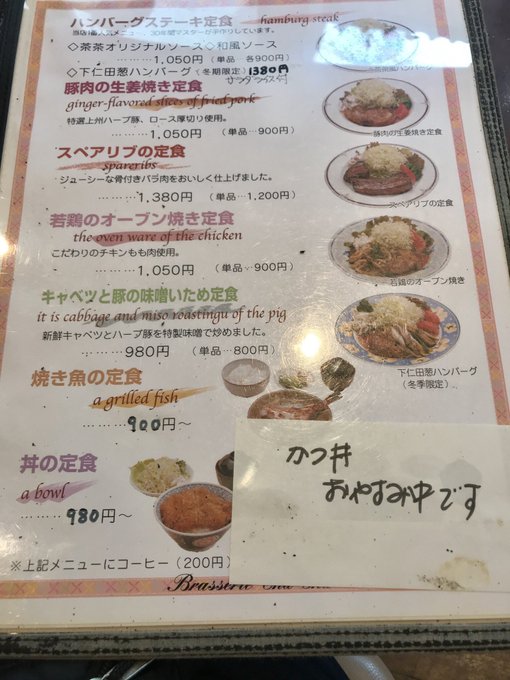 ハンバーグステーキ定食 hamburg steak
当店1番人気メニュー、30年間マスターが手作りしています。
◇茶茶オリジナルソース◇和風ソース
………1,050円（単品 各900円）
◇下仁田葱ハンバーグ（冬期限定）1380円
豚肉の生姜焼き定食
ginger-flavored slices of fried pork
特選上州ハーブ豚、ロース厚切り使用。
………1,050円（単品…900円）
豚肉の生姜焼き定食
スペアリブの定食
spareribs
ジューシーな骨付きバラ肉をおいしく仕上げました。
………1,380円（単品…1,200円）
スペアリブの定食
若鶏のオーブン焼き定食
the oven ware of the chicken
こだわりのチキンもも肉使用。
………1,050円（単品…900円）
若鶏のオーブン焼き
キャベツと豚の味噌いため定食
it is cabbage and miso roastingu of the pig
新鮮キャベツとハーブ豚を特製味噌で炒めました。
………980円（単品…800円）
下仁田葱ハンバーグ
（冬季限定）
焼き魚の定食
a grilled fish
………900円～
丼の定食
a bowl
………980円～
※上記メニューにコーヒー（200円）
Brasserie
かつ丼
おやすみ中です